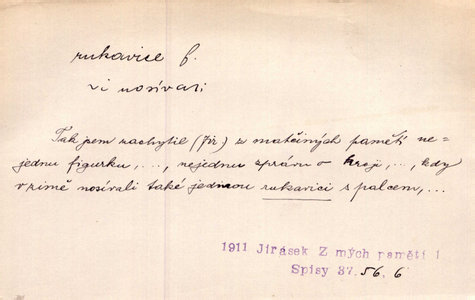 rukavice f.
vi nosívati
Tak jsem zachytil (Jir.) z matčiných pamětí ne-
jednu figurku, .., nejednu zprávu o kroji, .., kdy
v zimě nosívali také jednou rukavici s palcem, ...
1911 Jirásek Z mých pamětí 1
Spisy 37. 56. 6